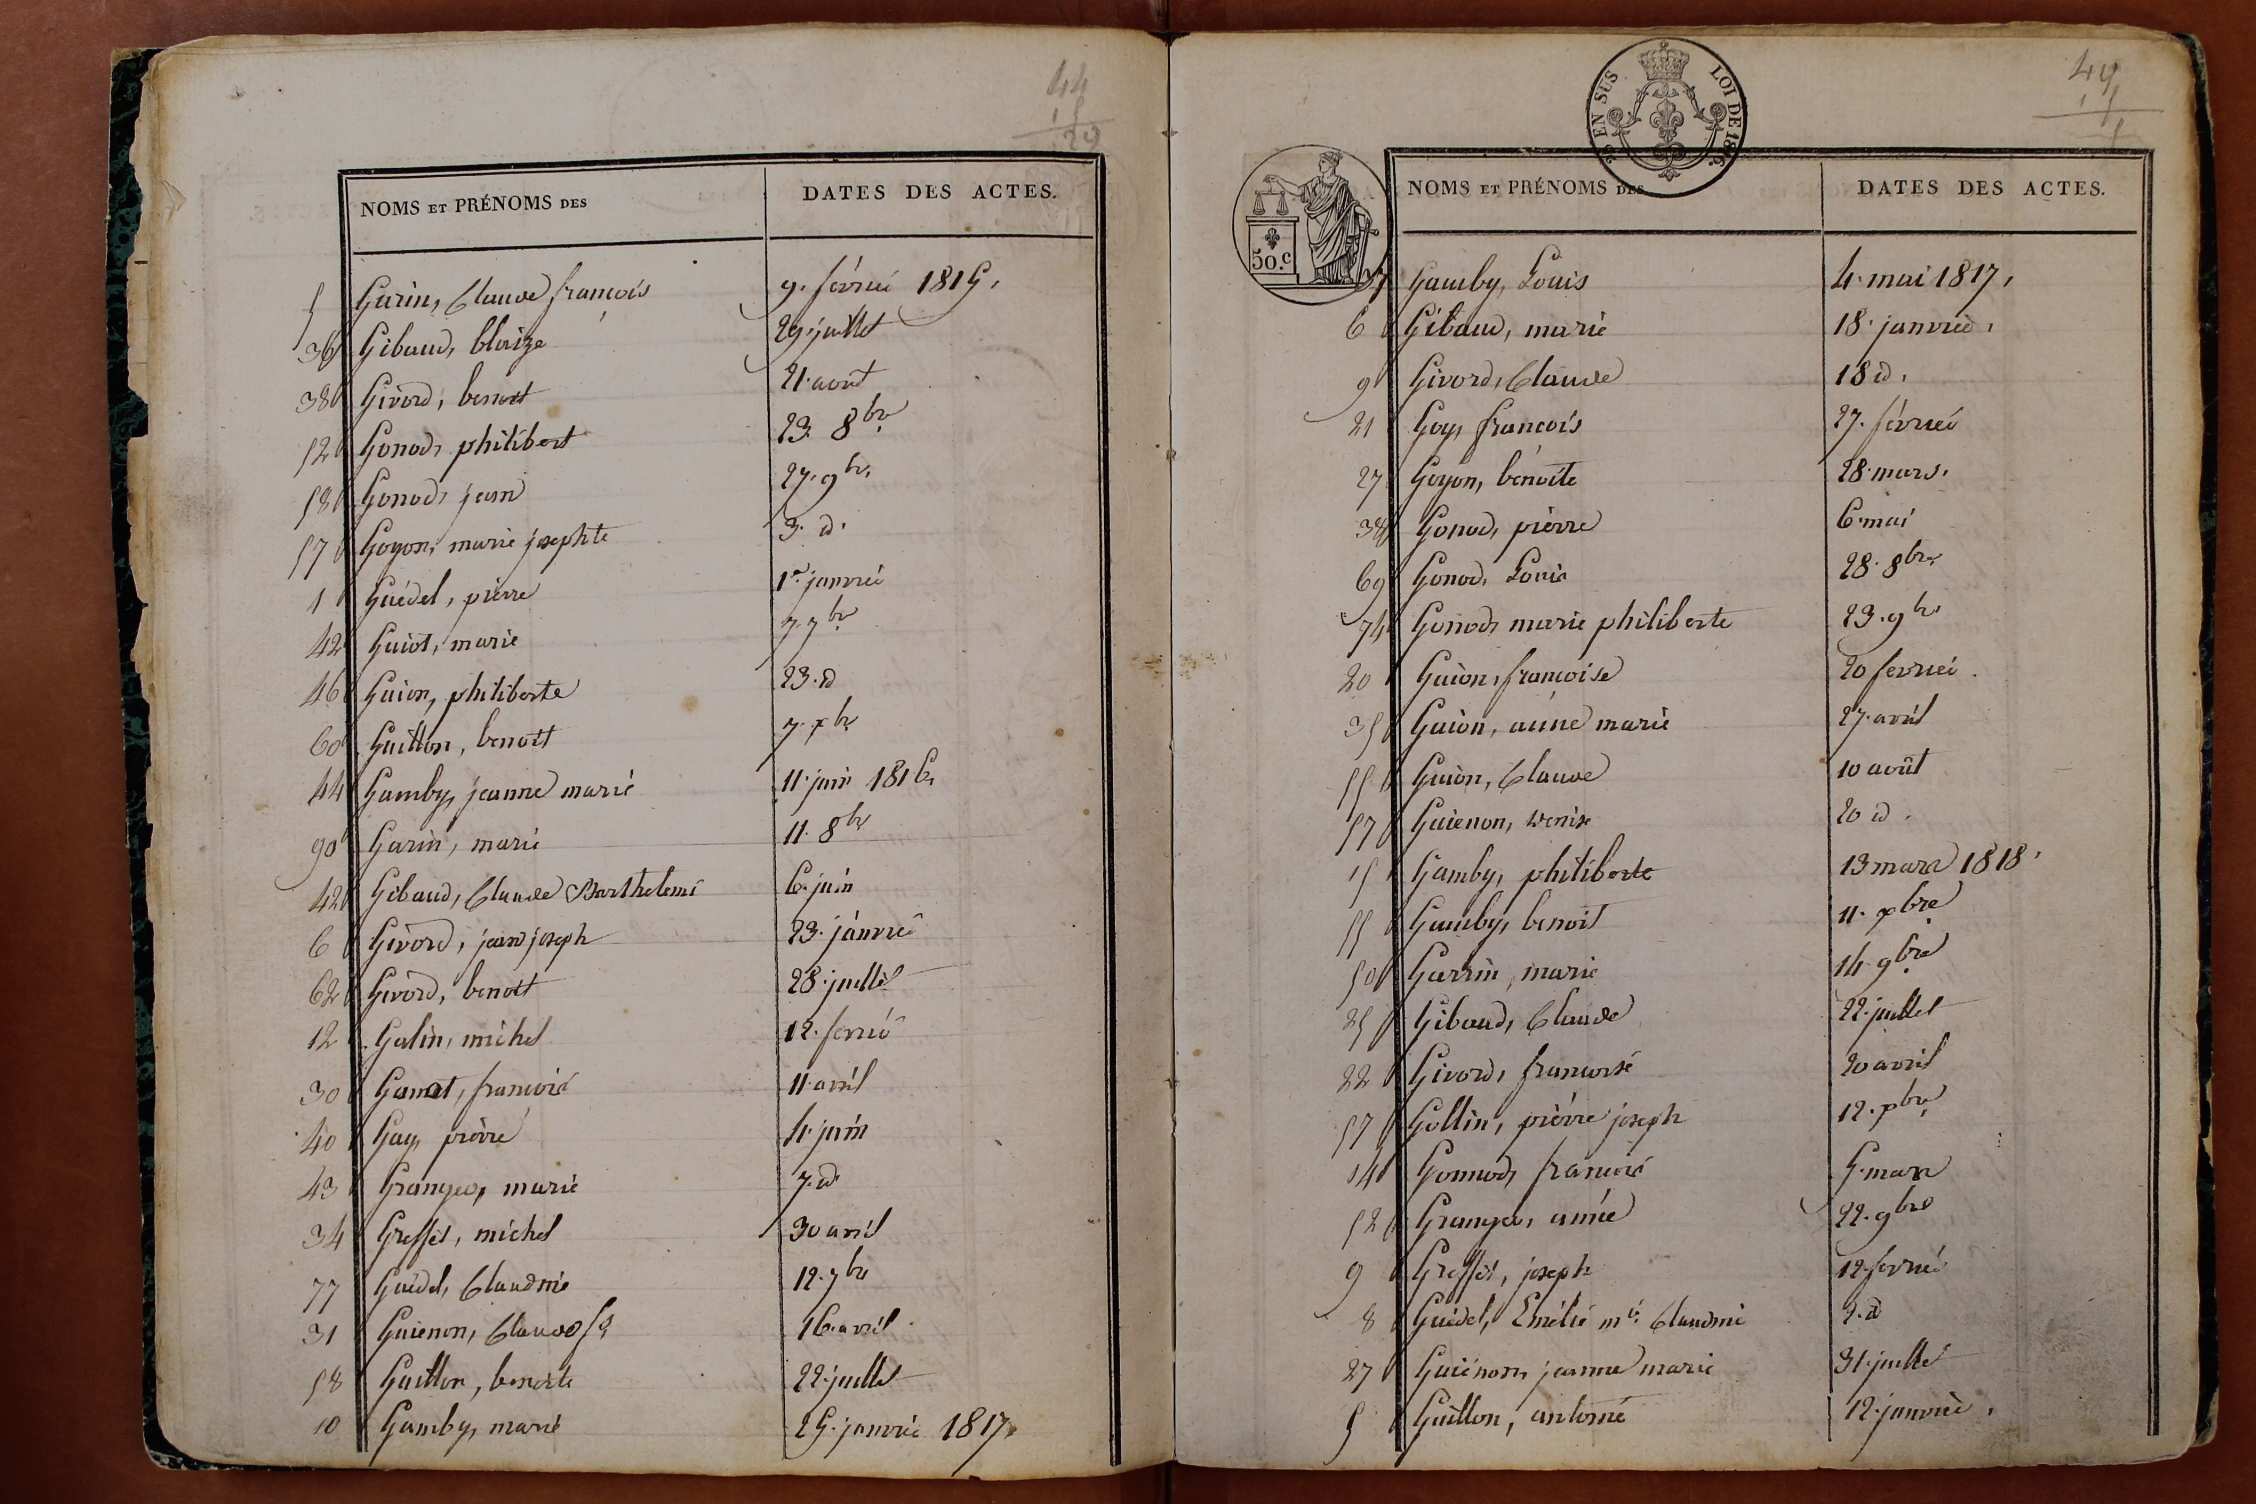 44
NOMS ET PRÉNOMS DES DATES DES ACTES.
5 Garin, Claude françois 9. février 1815.
36 Gibaud, blaize 29. juillet
38 Givord, benoit 21. aout
52 Gonod, philibert 23. 8bre
58 Gonod, jean 27. 9bre
57 Goyon, marie josephte 3. d.
1 Guédel, pierre 1er janvier
42 Guiot, marie 7. 7bre
46 Guion, philiberte 23. d
60 Guillon, benoit 7. xbre
44 Gamby, jeanne marie 11. juin 1816.
90 Garin, marie 11. 8bre
42 Gibaud, Claude Barthelemi 6. juin
6 Givord, jean joseph 23. janvier
62 Givord, benoit 28. juillet
12 Galin, michel 12. fevrier
30 Gamet, francois 11. avril
40 Guy, pierre 4. juin
43 Granger, marie 7. d
34 Greffet, michel 30 avril
77 Guédel, Claudine 12. 7bre
31 Guienon, Claude 16. avril
58 Guillon, benoite 22. juillet
10 Gamby, marie 25. janvier 1817.
EN SUS LOI DE 1816.
50.c
NOMS ET PRÉNOMS DES DATES DES ACTES.
37 Gamby, Louis 4. mai 1817.
6 Gibaud, marie 18. janvier.
9 Givord, Claude 18 d.
21 Goy, françois 27. février
27 Goyon, benoite 28. mars.
38 Gonod, pierre 6. mai
69 Gonod, Louis 28. 8bre
74 Gonod, marie philiberte 23. 9bre
20 Guion, françoise 20 fevrier.
35 Guion, anne marie 27. avril
55 Guion, Claude 10 août
57 Guienon, denise 20 d.
15 Gamby, philiberte 13 mars 1818.
55 Gamby, benoit 11. xbre
50 Garrin, marie 14. 9bre
25 Gibaud, Claude 22. juillet
22 Givord, francoise 20 avril
57 Gollin, pierre joseph 12. xbre
14 Gonnod, francois 5. mars
52 Granger, anne 22. 9bre
9 Greffet, joseph 12. fevrier
8 Guédel, Emélie mie. Claudine 2. d
27 Guiénon, jeanne marie 31. juillet
5 Guillon, antoine 12. janvier.